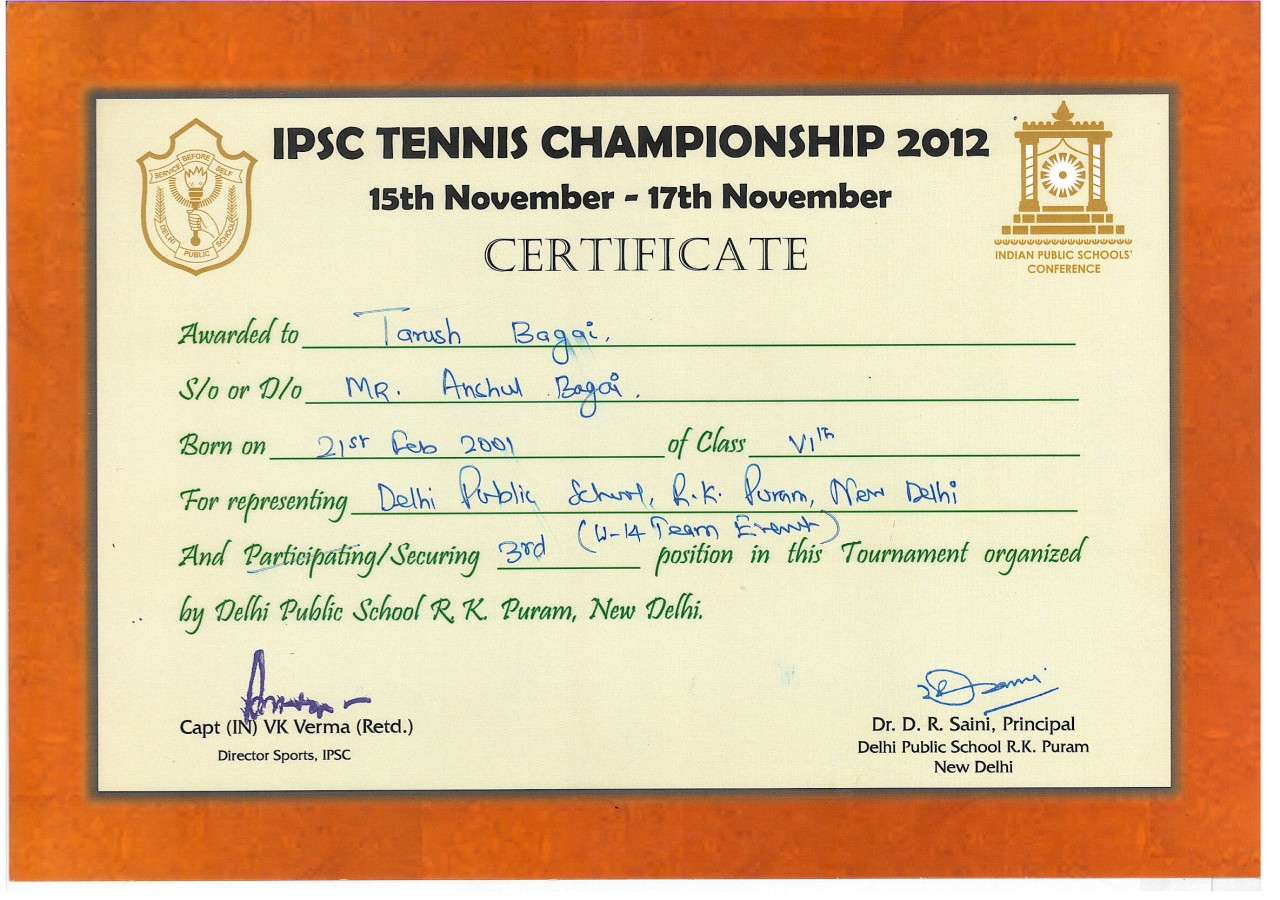 IPSC TENNIS CHAMPIONSHIP 2012
15th November - 17th November
CERTIFICATE
SERVICE BEFORE SELF
DELHI PUBLIC SCHOOL
INDIAN PUBLIC SCHOOLS'
CONFERENCE
Awarded to Tarush Bagai.
S/o or D/o MR. Anshul Bagai.
Born on 21st Feb 2001 of Class VIth
For representing Delhi Public School, R.K. Puram, New Delhi
(U-14 Team Event)
And Participating/Securing 3rd position in this Tournament organized
by Delhi Public School R. K. Puram, New Delhi.
Capt (IN) VK Verma (Retd.)
Director Sports, IPSC
Dr. D. R. Saini, Principal
Delhi Public School R.K. Puram
New Delhi